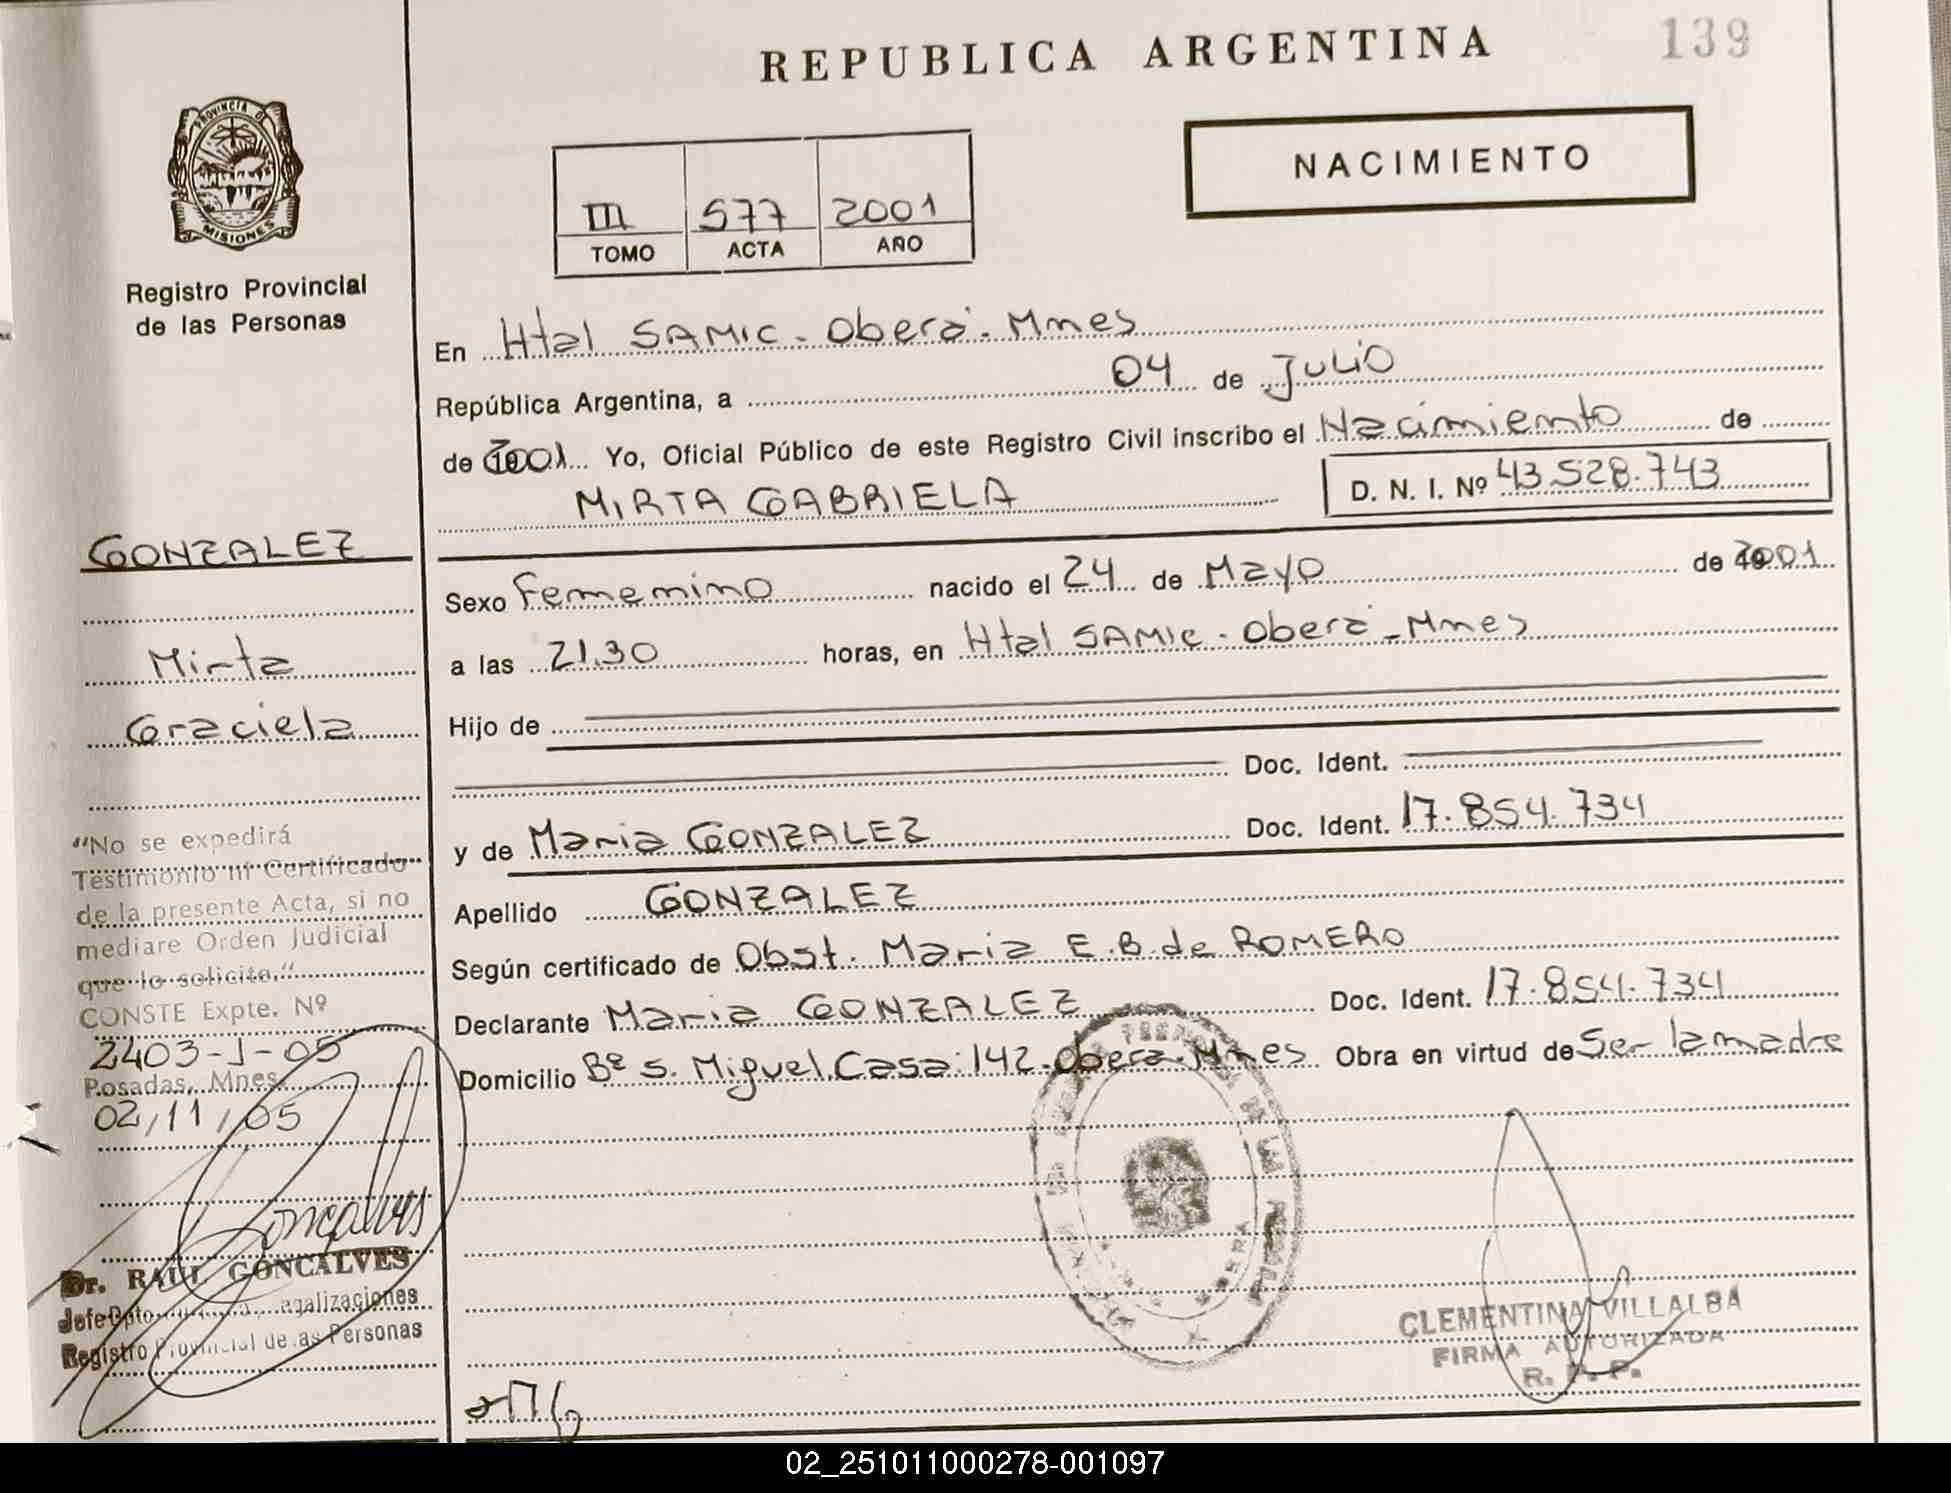 REPUBLICA ARGENTINA
139
NACIMIENTO
PROVINCIA DE
MISIONES
Registro Provincial
de las Personas
III 577 2001
TOMO ACTA AÑO
En Htal SAMIC - Oberá - Mnes
República Argentina, a 04 de Julio
de 2001 Yo, Oficial Público de este Registro Civil inscribo el Nacimiento de
MIRTA GABRIELA D. N. I. Nº 43.528.743
GONZALEZ
Mirta
Graciela
Sexo Femenino nacido el 24 de Mayo de 2001
a las 21.30 horas, en Htal SAMIC - Oberá - Mnes
Hijo de
Doc. Ident.
y de Maria GONZALEZ Doc. Ident. 17.854.734
Apellido GONZALEZ
Según certificado de Obst. Maria E.B. de ROMERO
Declarante Maria GONZALEZ Doc. Ident. 17.854.734
Domicilio Bº S. Miguel Casa: 142 - Oberá - Mnes Obra en virtud de Ser la madre
"No se expedirá
Testimonio ni Certificado
de la presente Acta, si no
mediare Orden Judicial
que lo solicite."
CONSTE Expte. Nº
2403-J-05
Posadas, Mnes.
02/11/05
Goncalves
Dr. RAUL GONCALVES
Jefe Dpto. Legalizaciones
Registro Provincial de las Personas
CLEMENTINA VILLALBA
FIRMA AUTORIZADA
R. P. P.
02_251011000278-001097